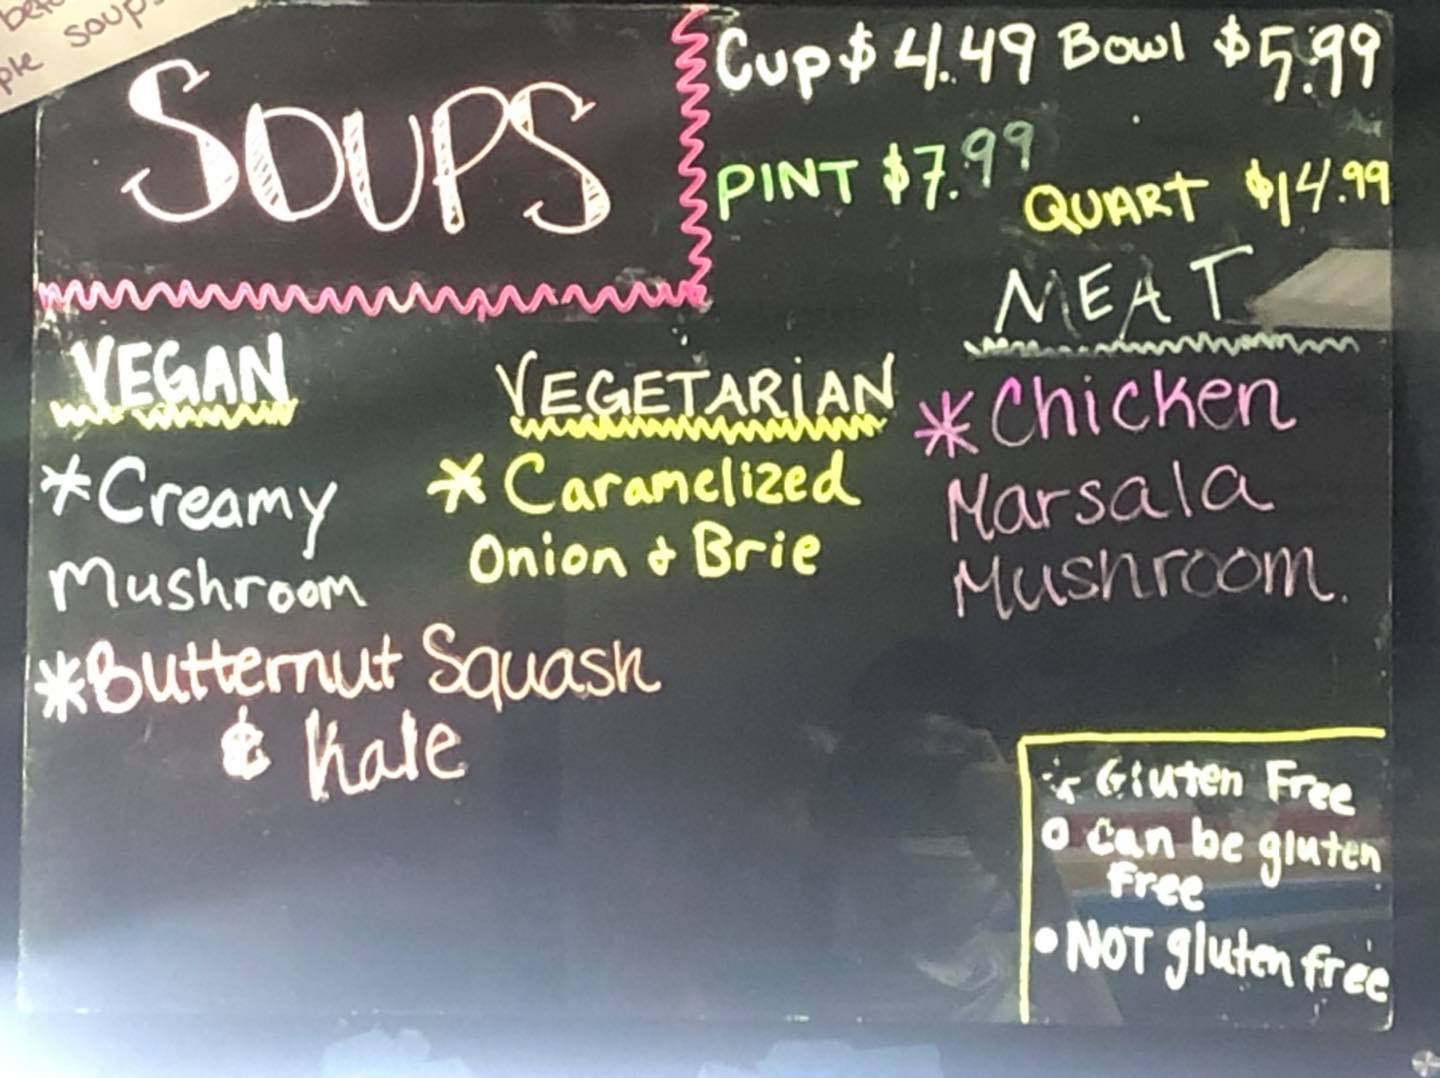 soups
SOUPS
Cup $4.49 Bowl $5.99
PINT $7.99
QUART $14.99
VEGAN
*Creamy
Mushroom
*Butternut Squash
& Kale
VEGETARIAN
* Caramelized
Onion & Brie
MEAT
*Chicken
Marsala
Mushroom.
* Gluten Free
o Can be gluten
free
• NOT gluten free